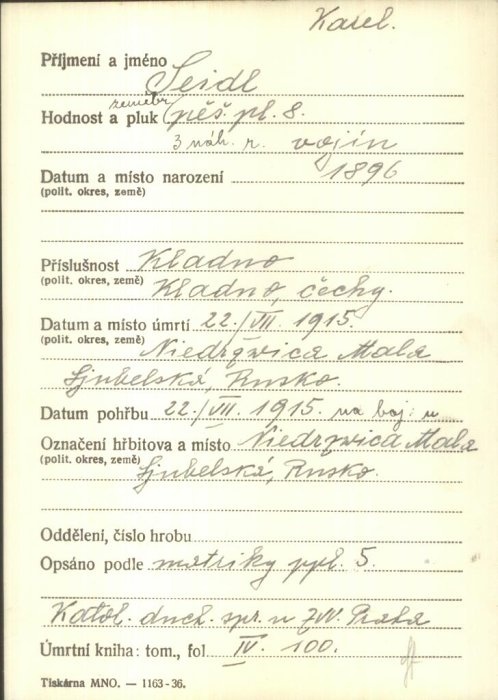 Karel.
Příjmení a jméno Seidl
zeměbr.
Hodnost a pluk pěš. pl. 8.
3 náh. r. vojín
Datum a místo narození 1896
(polit. okres, země)
Příslušnost Kladno
(polit. okres, země) Kladno, čechy.
Datum a místo úmrtí 22./VII. 1915.
(polit. okres, země) Niedrzwica Mala
Ljubelská, Rusko.
Datum pohřbu 22./VII. 1915. na boj. u
Označení hřbitova a místo Niedrzwica Mala
(polit. okres, země) Ljubelská, Rusko.
Oddělení, číslo hrobu
Opsáno podle matriky ppl. 5.
Katol. duch. spr. u ZVV. Praha
Úmrtní kniha: tom., fol. IV. 100.
Tiskárna MNO. — 1163-36.